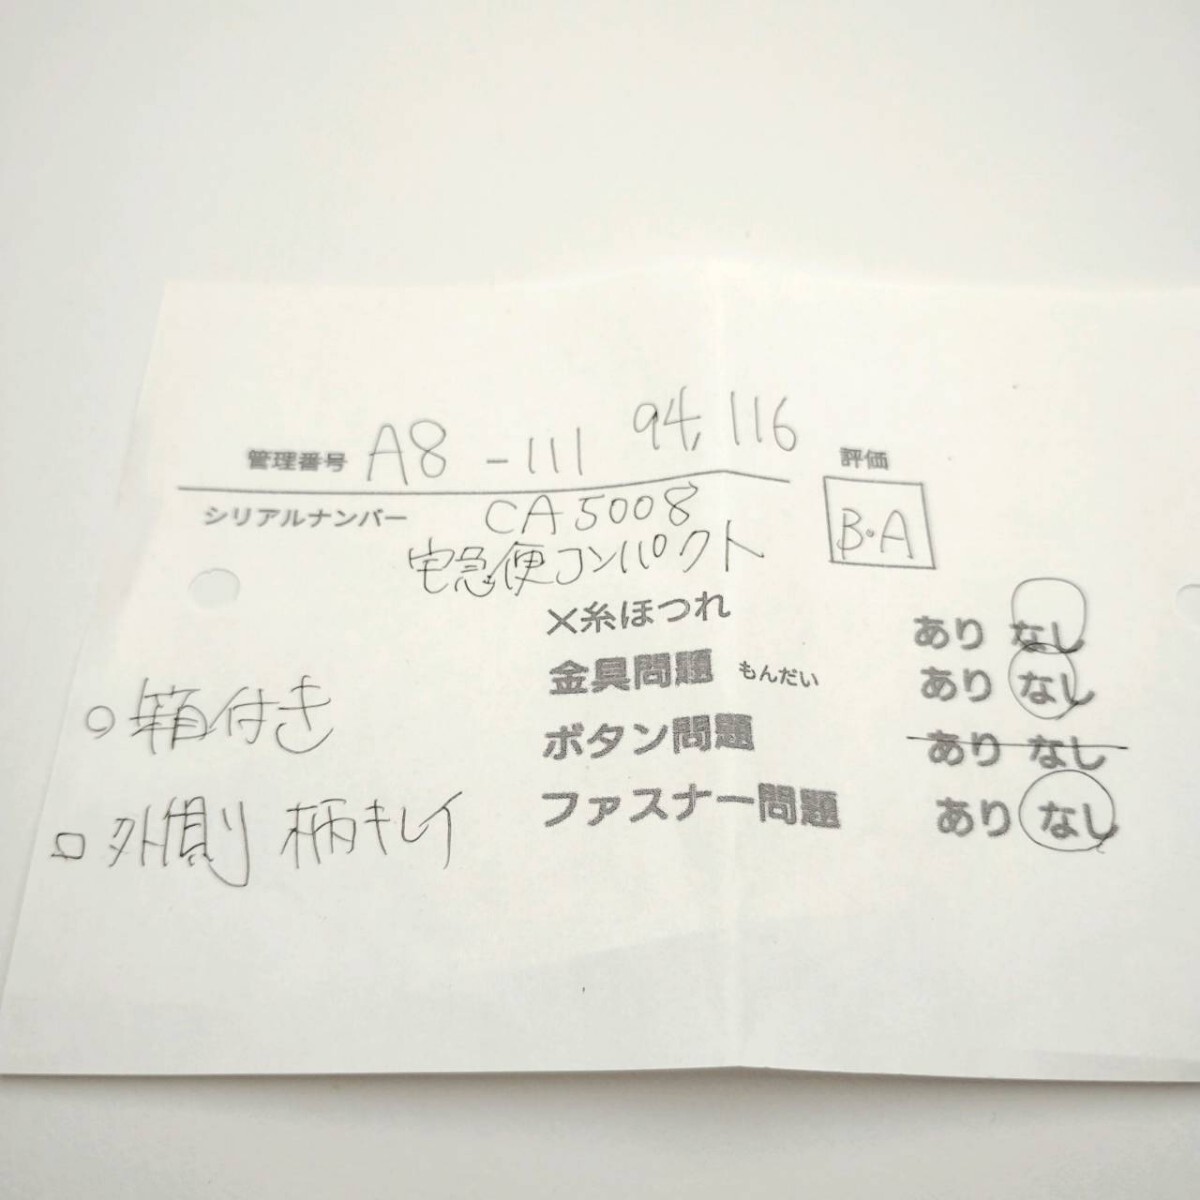 管理番号 A8-111 94,116
評価
シリアルナンバー CA5008
B・A
宅急便コンパクト
×糸ほつれ あり なし
金具問題 もんだい あり なし
ボタン問題 あり なし
ファスナー問題 あり なし
○箱付き
□外側り 柄キレイ